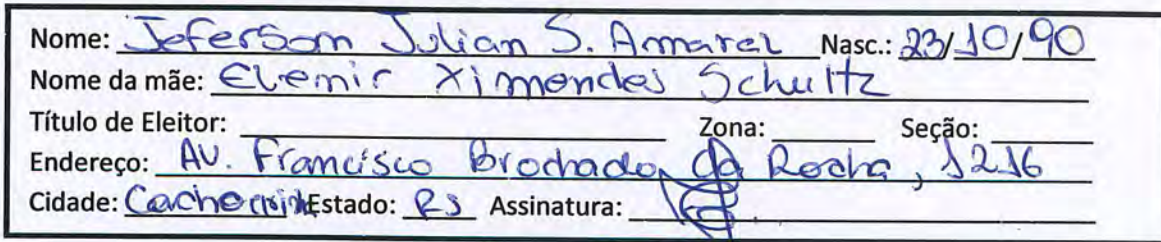 Nome: Jeferson Julian S. Amaral Nasc.: 23/10/90
Nome da mãe: Elemir Ximendes Schultz
Título de Eleitor: Zona: Seção:
Endereço: AV. Francisco Brochado da Rocha, 1216
Cidade: Cachoeirinha Estado: RS Assinatura: